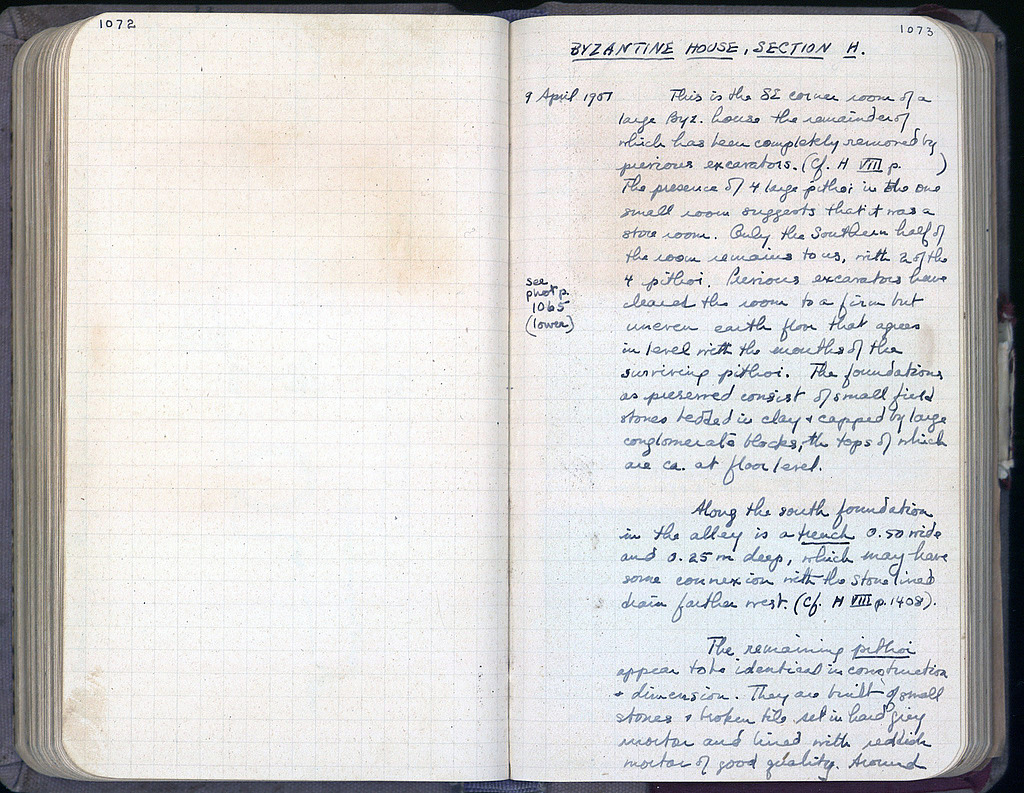 1072
1073
BYZANTINE HOUSE, SECTION H.
9 April 1951
This is the SE corner room of a
large Byz. house the remainder of
which has been completely removed by
previous excavators. (Cf. H VIII p. )
The presence of 4 large pithoi in the one
small room suggests that it was a
store room. Only the Southern half of
the room remains to us, with 2 of the
4 pithoi. Previous excavators have
cleared the room to a firm but
uneven earth floor that agrees
in level with the mouths of the
surviving pithoi. The foundations
as preserved consist of small field
stones bedded in clay & capped by large
conglomerate blocks, the tops of which
are ca. at floor level.
see
phot p.
1065
(lower)
Along the south foundation
in the alley is a trench 0.50 wide
and 0.25 m deep, which may have
some connexion with the stone lined
drain farther west. (Cf. H VIII p. 1408).
The remaining pithoi
appear to be identical in construction
& dimension. They are built of small
stones & broken tile set in hard grey
mortar and lined with reddish
mortar of good quality. Around